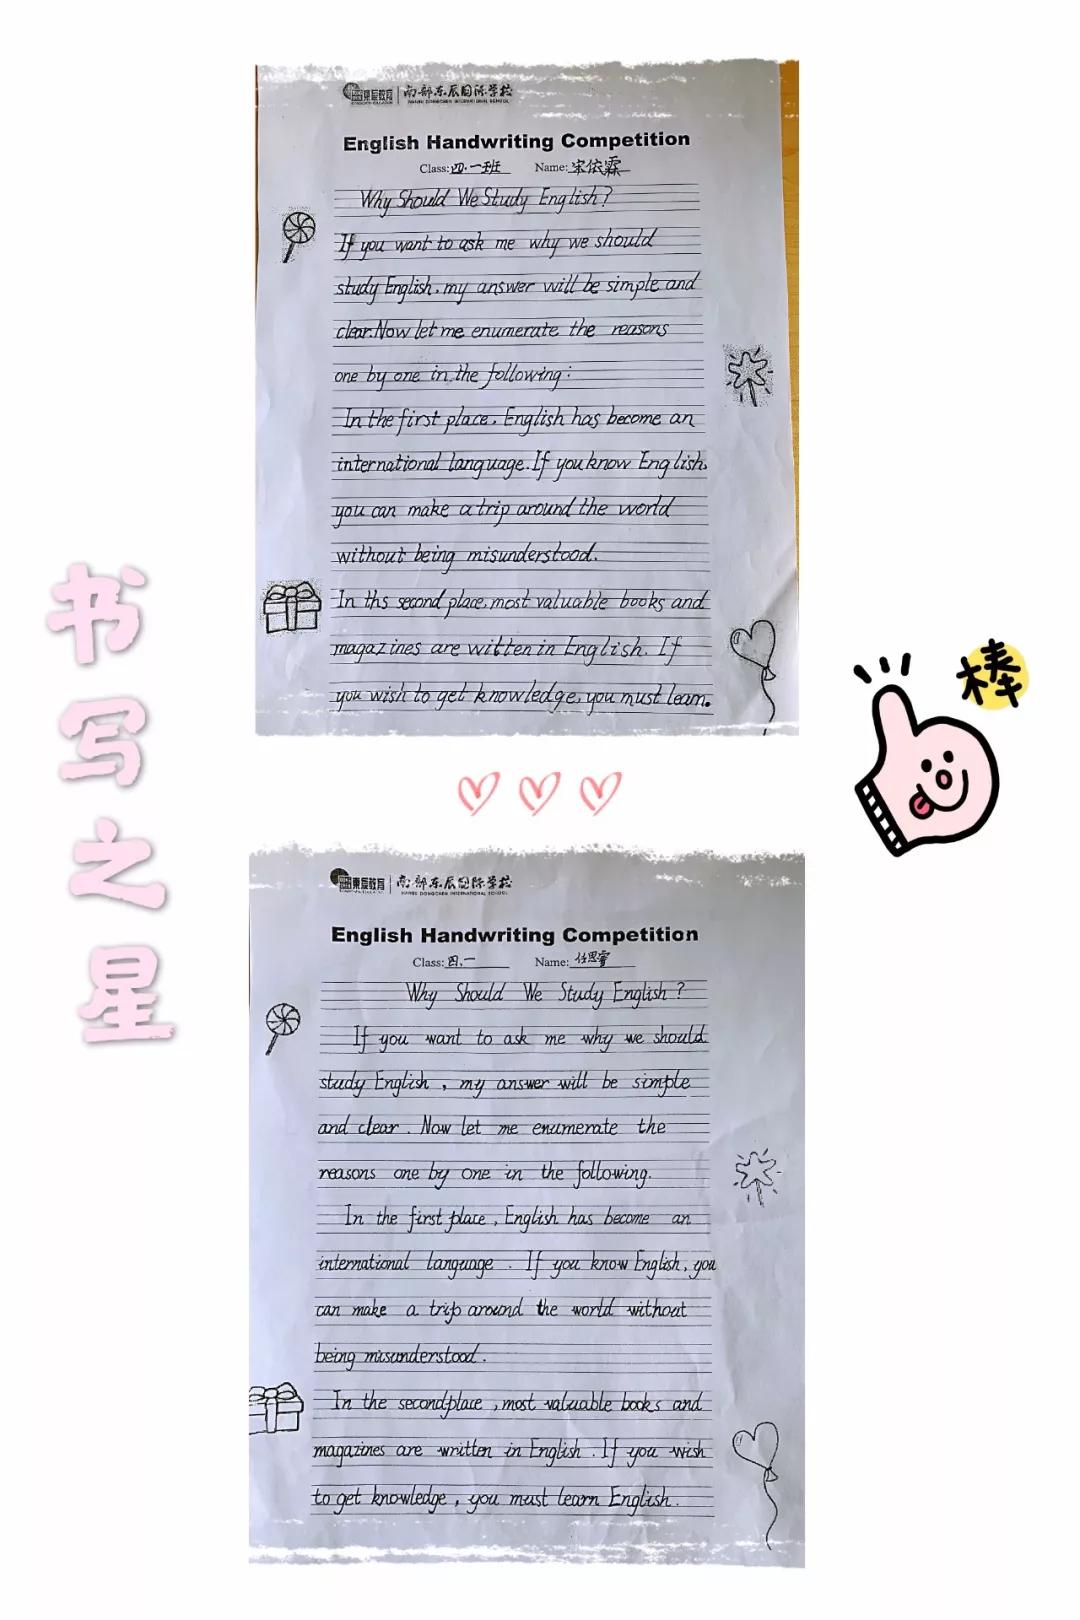 東辰教育 南部东辰国际学校
NANBU DONGCHEN INTERNATIONAL SCHOOL
English Handwriting Competition
Class: 四.一班 Name: 宋依霖
Why Should We Study English?
If you want to ask me why we should
study English, my answer will be simple and
clear.Now let me enumerate the reasons
one by one in the following:
In the first place, English has become an
international language.If you know English,
you can make a trip around the world
without being misunderstood.
In ths second place, most valuable books and
magazines are witten in English. If
you wish to get knowledge, you must learn.
书写之星
棒
東辰教育 南部东辰国际学校
NANBU DONGCHEN INTERNATIONAL SCHOOL
English Handwriting Competition
Class: 四.一 Name: 任思睿
Why Should We Study English?
If you want to ask me why we should
study English, my answer will be simple
and clear. Now let me enumerate the
reasons one by one in the following.
In the first place, English has become an
international language. If you know English, you
can make a trip around the world without
being misunderstood.
In the secondplace, most valuable books and
magazines are written in English. If you wish
to get knowledge, you must learn English.